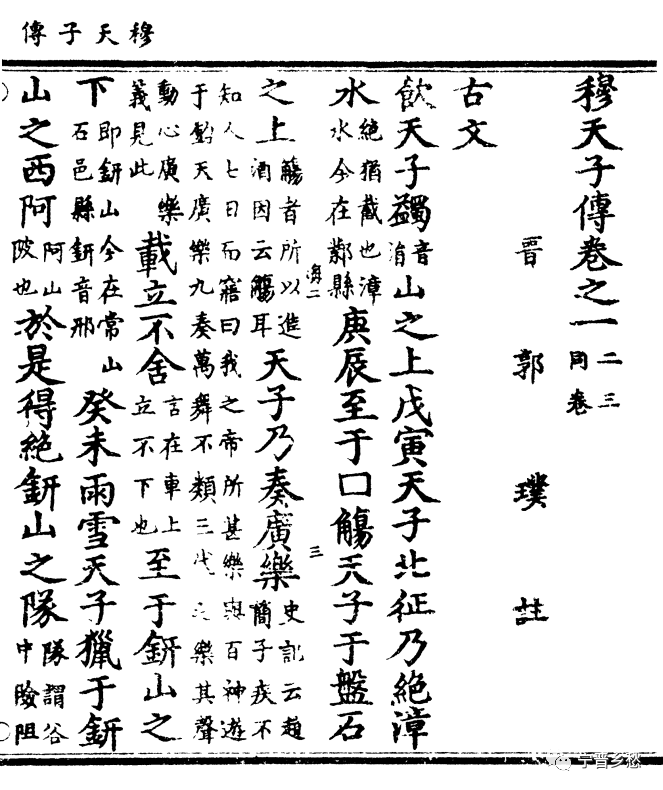 穆天子傳
穆天子傳卷之一二三同卷
晉郭璞註
古文
飲天子蠲音涓山之上戊寅天子北征乃絕漳
水絕猶截也漳水今在鄴縣庚辰至于口觴天子于盤石
之上觴者所以進酒因云觴耳天子乃奏廣樂史記云趙簡子疾不
海二
三
知人七日而寤曰我之帝所甚樂與百神遊
于鈞天廣樂九奏萬舞不類三代之樂其聲
動心廣樂義見此載立不舍言在車上立不下也至于鈃山之
下即鈃山今在常山石邑縣鈃音邢癸未雨雪天子獵于鈃
山之西阿阿山陂也於是得絕鈃山之隊隊謂谷中險阻
宁晋乡愁